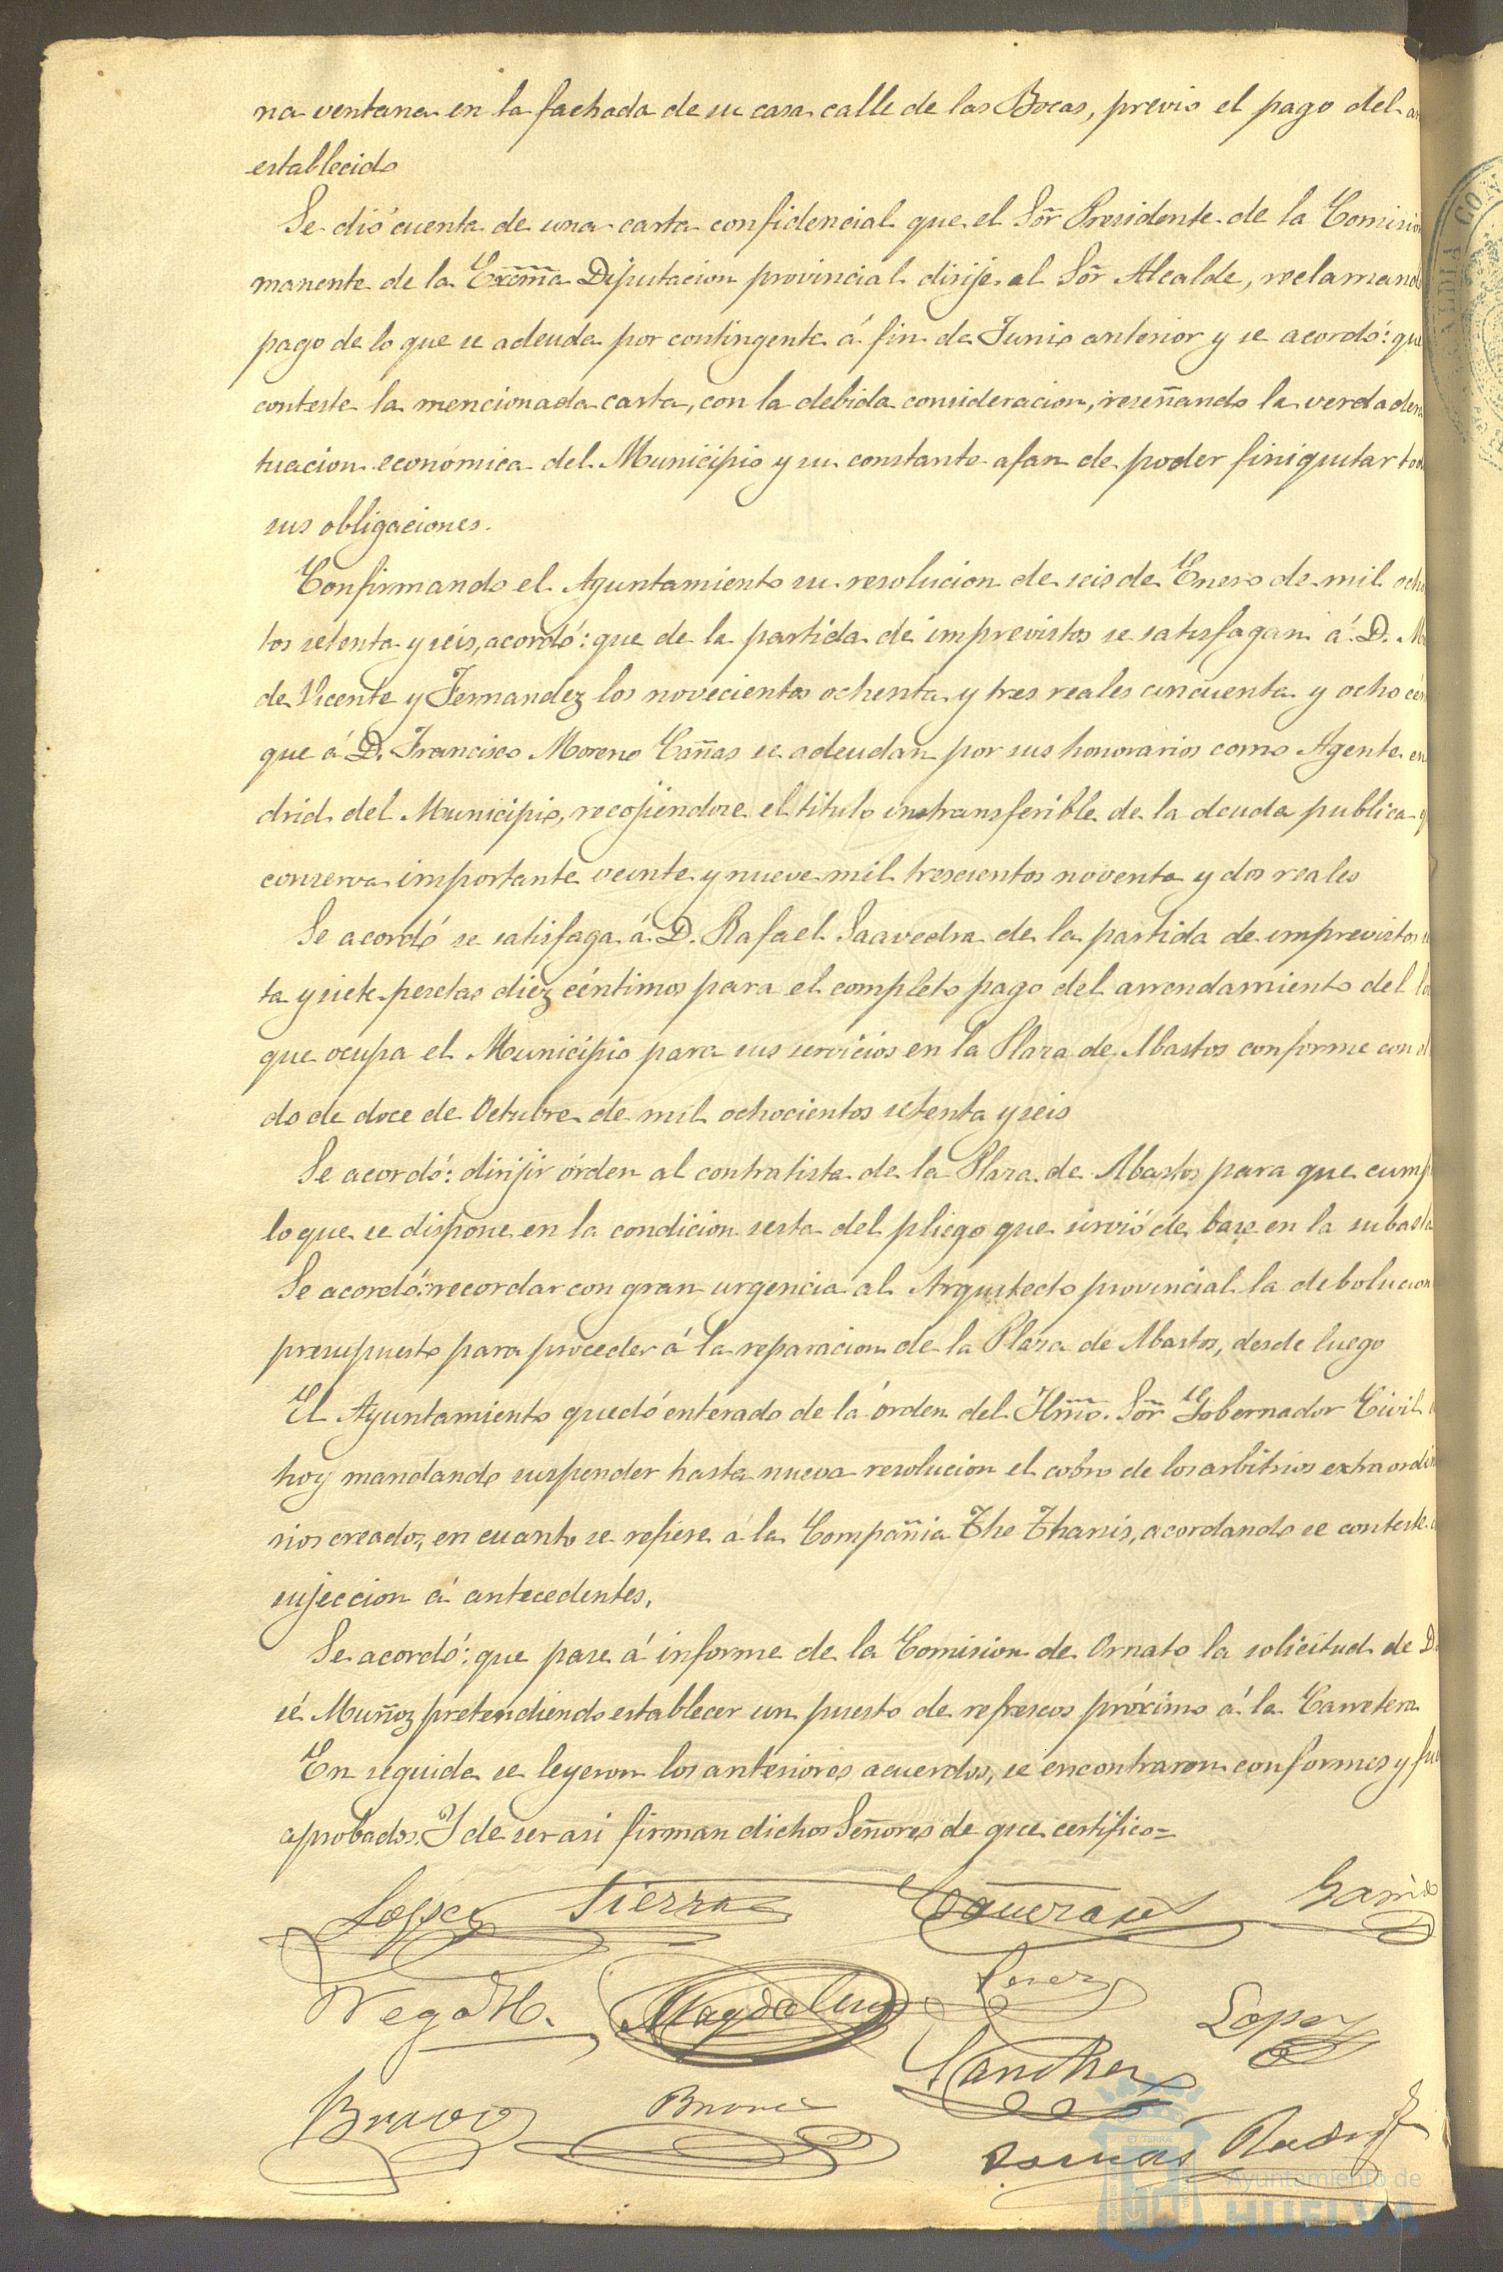 na ventana en la fachada de su casa calle de las Bocas, previo el pago del
establecido
Se dió cuenta de una carta confidencial que el Sõr Presidente de la Comision
manente de la Excm̃a Diputacion provincial dirije al Sõr Alcalde, reclamando
pago de lo que se adeuda por contingente á fin de Junio anterior y se acordó: que
conteste la mencionada carta, con la debida consideracion, reseñando la verdadera
tuacion económica del Municipio y su constante afan de poder finiquitar
sus obligaciones.
Confirmando el Ayuntamiento su resolucion de seis de Enero de mil ocho
tos setenta y seis, acordó: que de la partida de imprevistos se satisfagan á D. M
de Vicente y Fernandez los novecientos ochenta y tres reales cincuenta y ocho cén
que á D. Francisco Moreno Cañas se adeudan por sus honorarios como Agente en
drid del Municipio, recojiendose el titulo instransferible de la deuda publica q
conserva importante veinte y nueve mil trescientos noventa y dos reales
Se acordó se satisfaga á D. Rafael Saavedra de la partida de imprevistos
ta y siete pesetas diez céntimos para el completo pago del arrendamiento del lo
que ocupa el Municipio para sus servicios en la Plaza de Abastos conforme con
do de doce de Octubre de mil ochocientos setenta y seis
Se acordó: dirijir órden al contratista de la Plaza de Abastos para que cump
lo que se dispone en la condicion sesta del pliego que sirvió de base en la subasta
Se acordó: recordar con gran urgencia al Arquitecto provincial la debolucion
presupuesto para proceder á la reparacion de la Plaza de Abastos, desde luego
El Ayuntamiento quedó enterado de la órden del Ilm̃o. Sõr Gobernador Civil
hoy mandando suspender hasta nueva resolucion el cobro de los arbitrios extraordin
rios creados, en cuanto se refiere á la Compañia The Tharsis, acordando se conteste
sujeccion á antecedentes.
Se acordó: que pase á informe de la Comision de Ornato la solicitud de D.
sé Muñoz pretendiendo establecer un puesto de refrescos próximo á la Carretera
En seguida se leyeron los anteriores acuerdos, se encontraron conformes y fue
aprobados. Y de ser asi firman dichos Señores de que certifico=
Lopez Tierra Garrido
Vega H. Magdalena Perez Lopez
Sanchez
Bravo
Tomás Rodrig
Ayuntamiento de
HUELVA